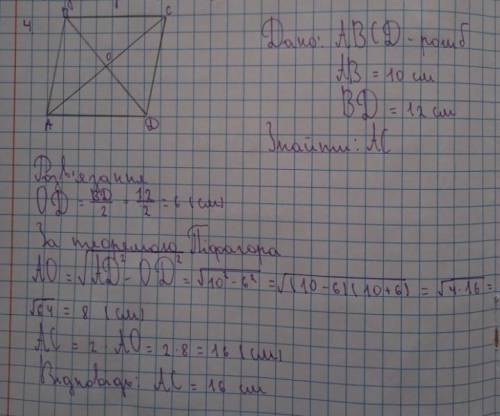 4
B C
O
A D
Дано: ABCD - ромб
AB = 10 см
BD = 12 см
Знайти: AC
Розв'язання
OD = BD/2 = 12/2 = 6 (см)
За теоремою Піфагора
AO = √AD² - OD² = √10² - 6² = √(10-6)(10+6) = √4·16 =
√64 = 8 (см)
AC = 2 · AO = 2·8 = 16 (см)
Відповідь: AC = 16 см